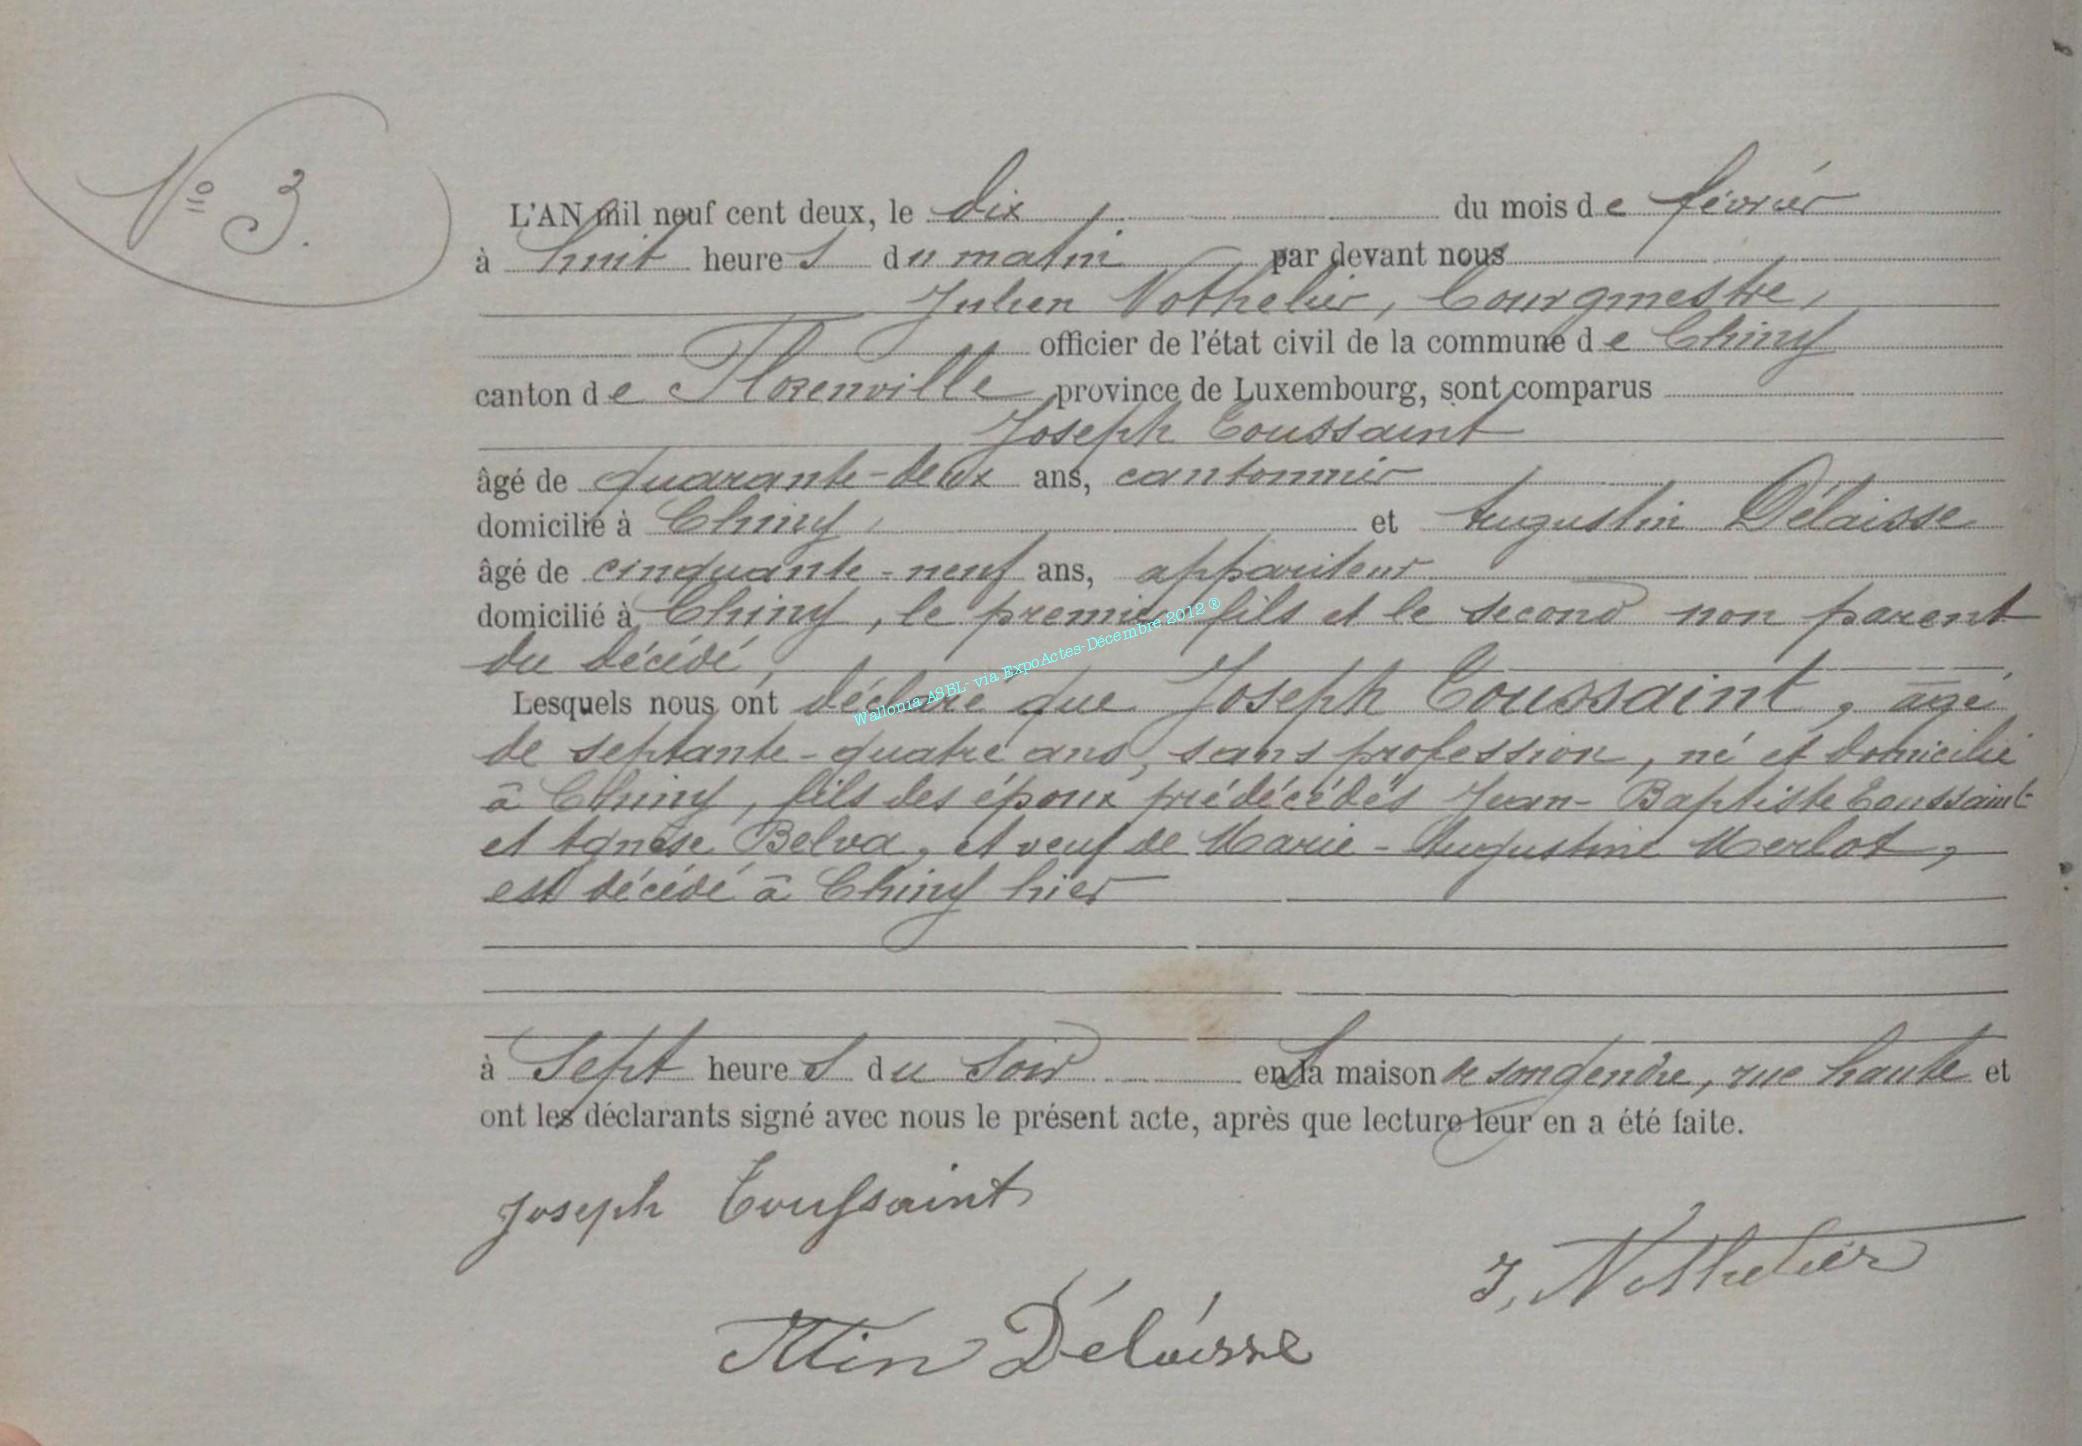 Nº 3.
L'AN mil neuf cent deux, le dix du mois de février
à huit heures du matin par devant nous
Julien Nothelier, bourgmestre,
officier de l'état civil de la commune de Chiny
canton de Florenville province de Luxembourg, sont comparus
Joseph Toussaint
âgé de quarante-deux ans, cantonnier
domicilié à Chiny, et Augustin Délaisse
âgé de cinquante-neuf ans, appariteur
domicilié à Chiny, le premier fils et le second non parent
du décédé,
Lesquels nous ont déclaré que Joseph Toussaint, âgé
de septante-quatre ans, sans profession, né et domicilié
à Chiny, fils des époux prédécédés Jean-Baptiste Toussaint
et Agnèse Belva, et veuf de Marie-Augustine Merlot,
est décédé à Chiny hier
à sept heures du soir en sa maison de son gendre, rue haute et
ont les déclarants signé avec nous le présent acte, après que lecture leur en a été faite.
Joseph Toussaint
J. Nothelier
Délaisse
Wallonia ASBL- via ExpoActes-Décembre 2012 ®